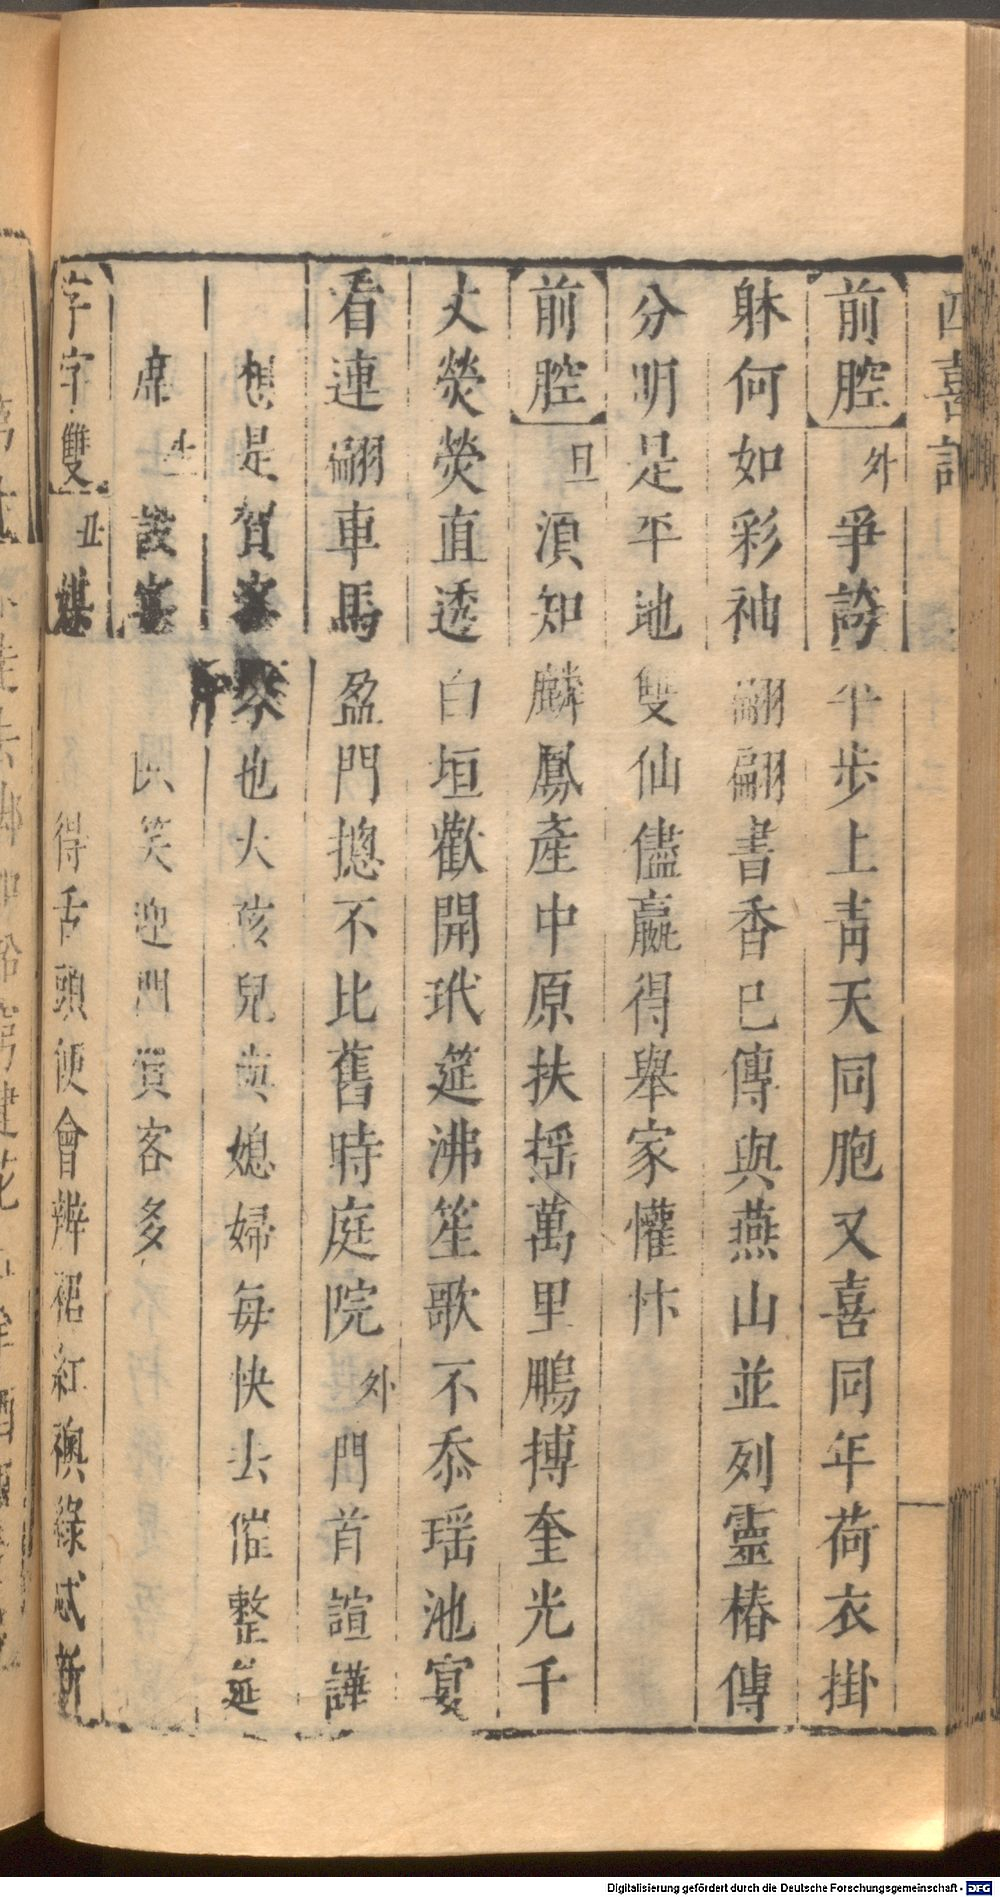 四喜記
前腔 外 爭誇平步上靑天同胞又喜同年荷衣掛
躰何如彩袖翩翩書香已傳與燕山並列靈椿傳
分明是平地雙仙儘嬴得舉家懽忭
前腔 旦 湏知麟鳳產中原扶摇萬里鵬搏奎光千
丈熒熒直透白垣歡開玳筵沸笙歌不忝瑶池宴
看連翩車馬盈門摠不比舊時庭院 外 門首諠譁
想是賀客來也大孩兒與媳婦每快去催整筵
席 生 設筵 笑迎門賀客多
字字雙 丑 媒 得舌頭便會辨裙紅襖綠忒新
Digitalisierung gefördert durch die Deutsche Forschungsgemeinschaft - DFG